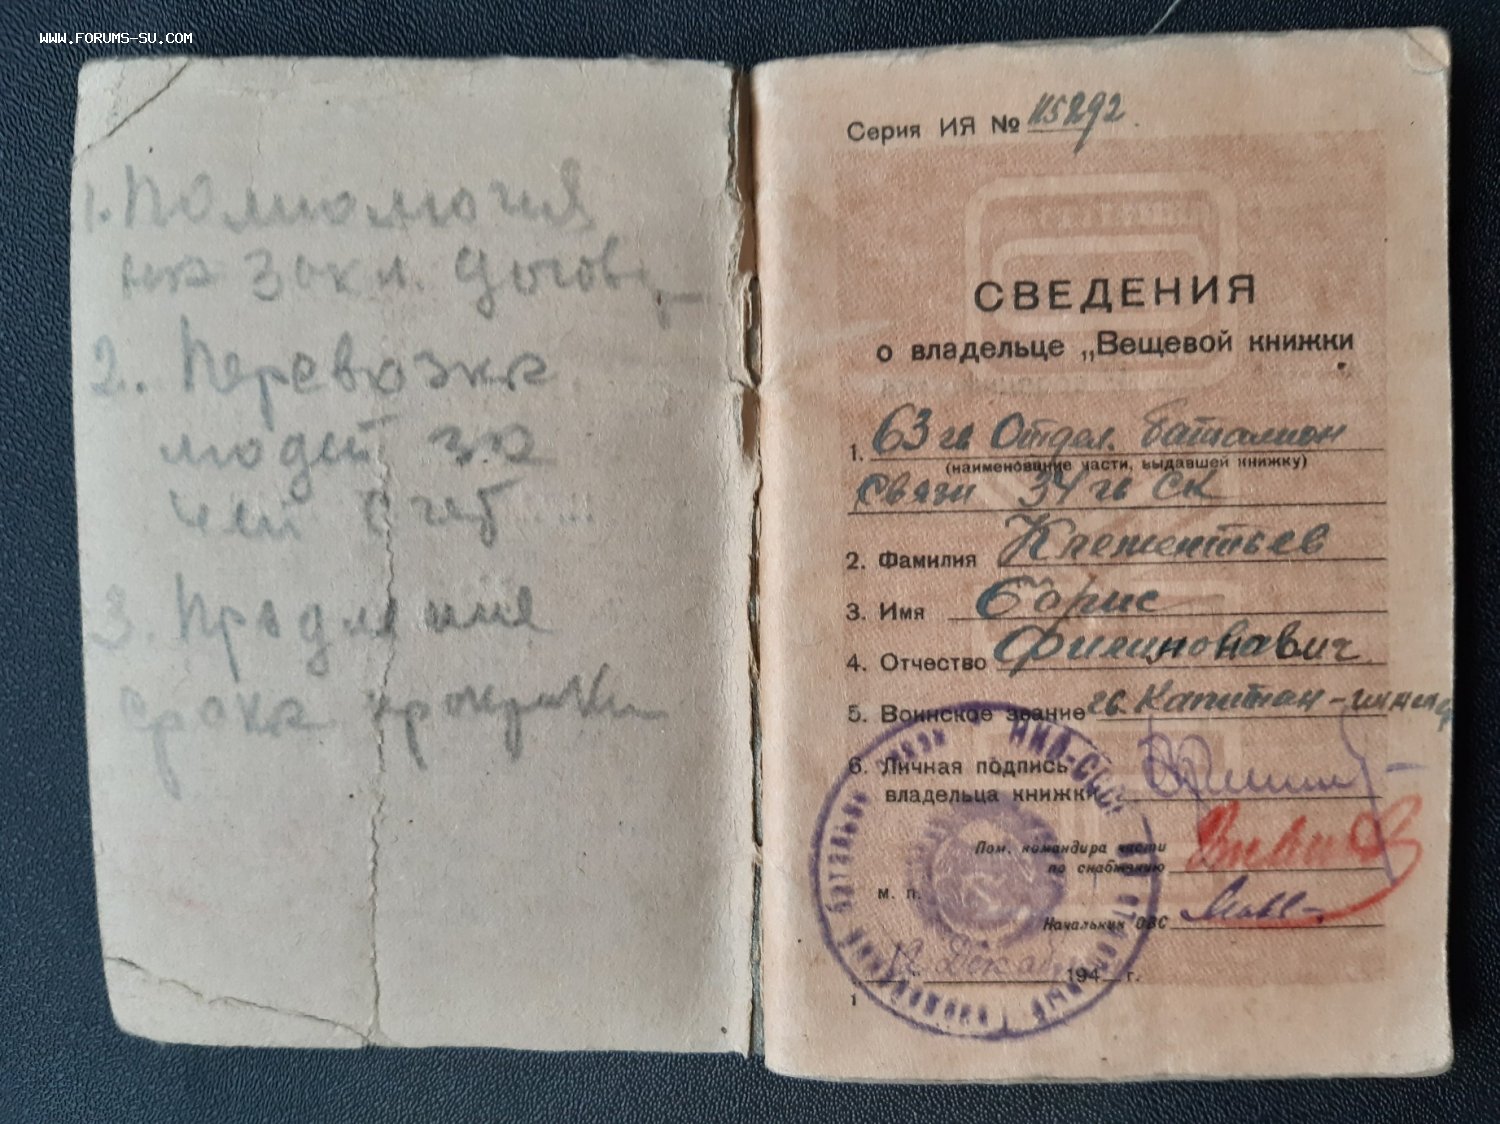 www.forums-su.com
1. Полномочия
на закл. догов.
2. Перевозка
людей за
чей счет
3. Продление
срока
Серия ИЯ № 115292
СВЕДЕНИЯ
о владельце „Вещевой книжки
1. 63 гв Отдел. батальон
(наименование части, выдавшей книжку)
связи 34 гв СК
2. Фамилия Клементьев
3. Имя Борис
4. Отчество Филимонович
5. Воинское звание гв. Капитан
6. Личная подпись
владельца книжки
Пом. командира части
по снабжению
м. п.
Начальник ОВС
12 Декаб 194 г.
1